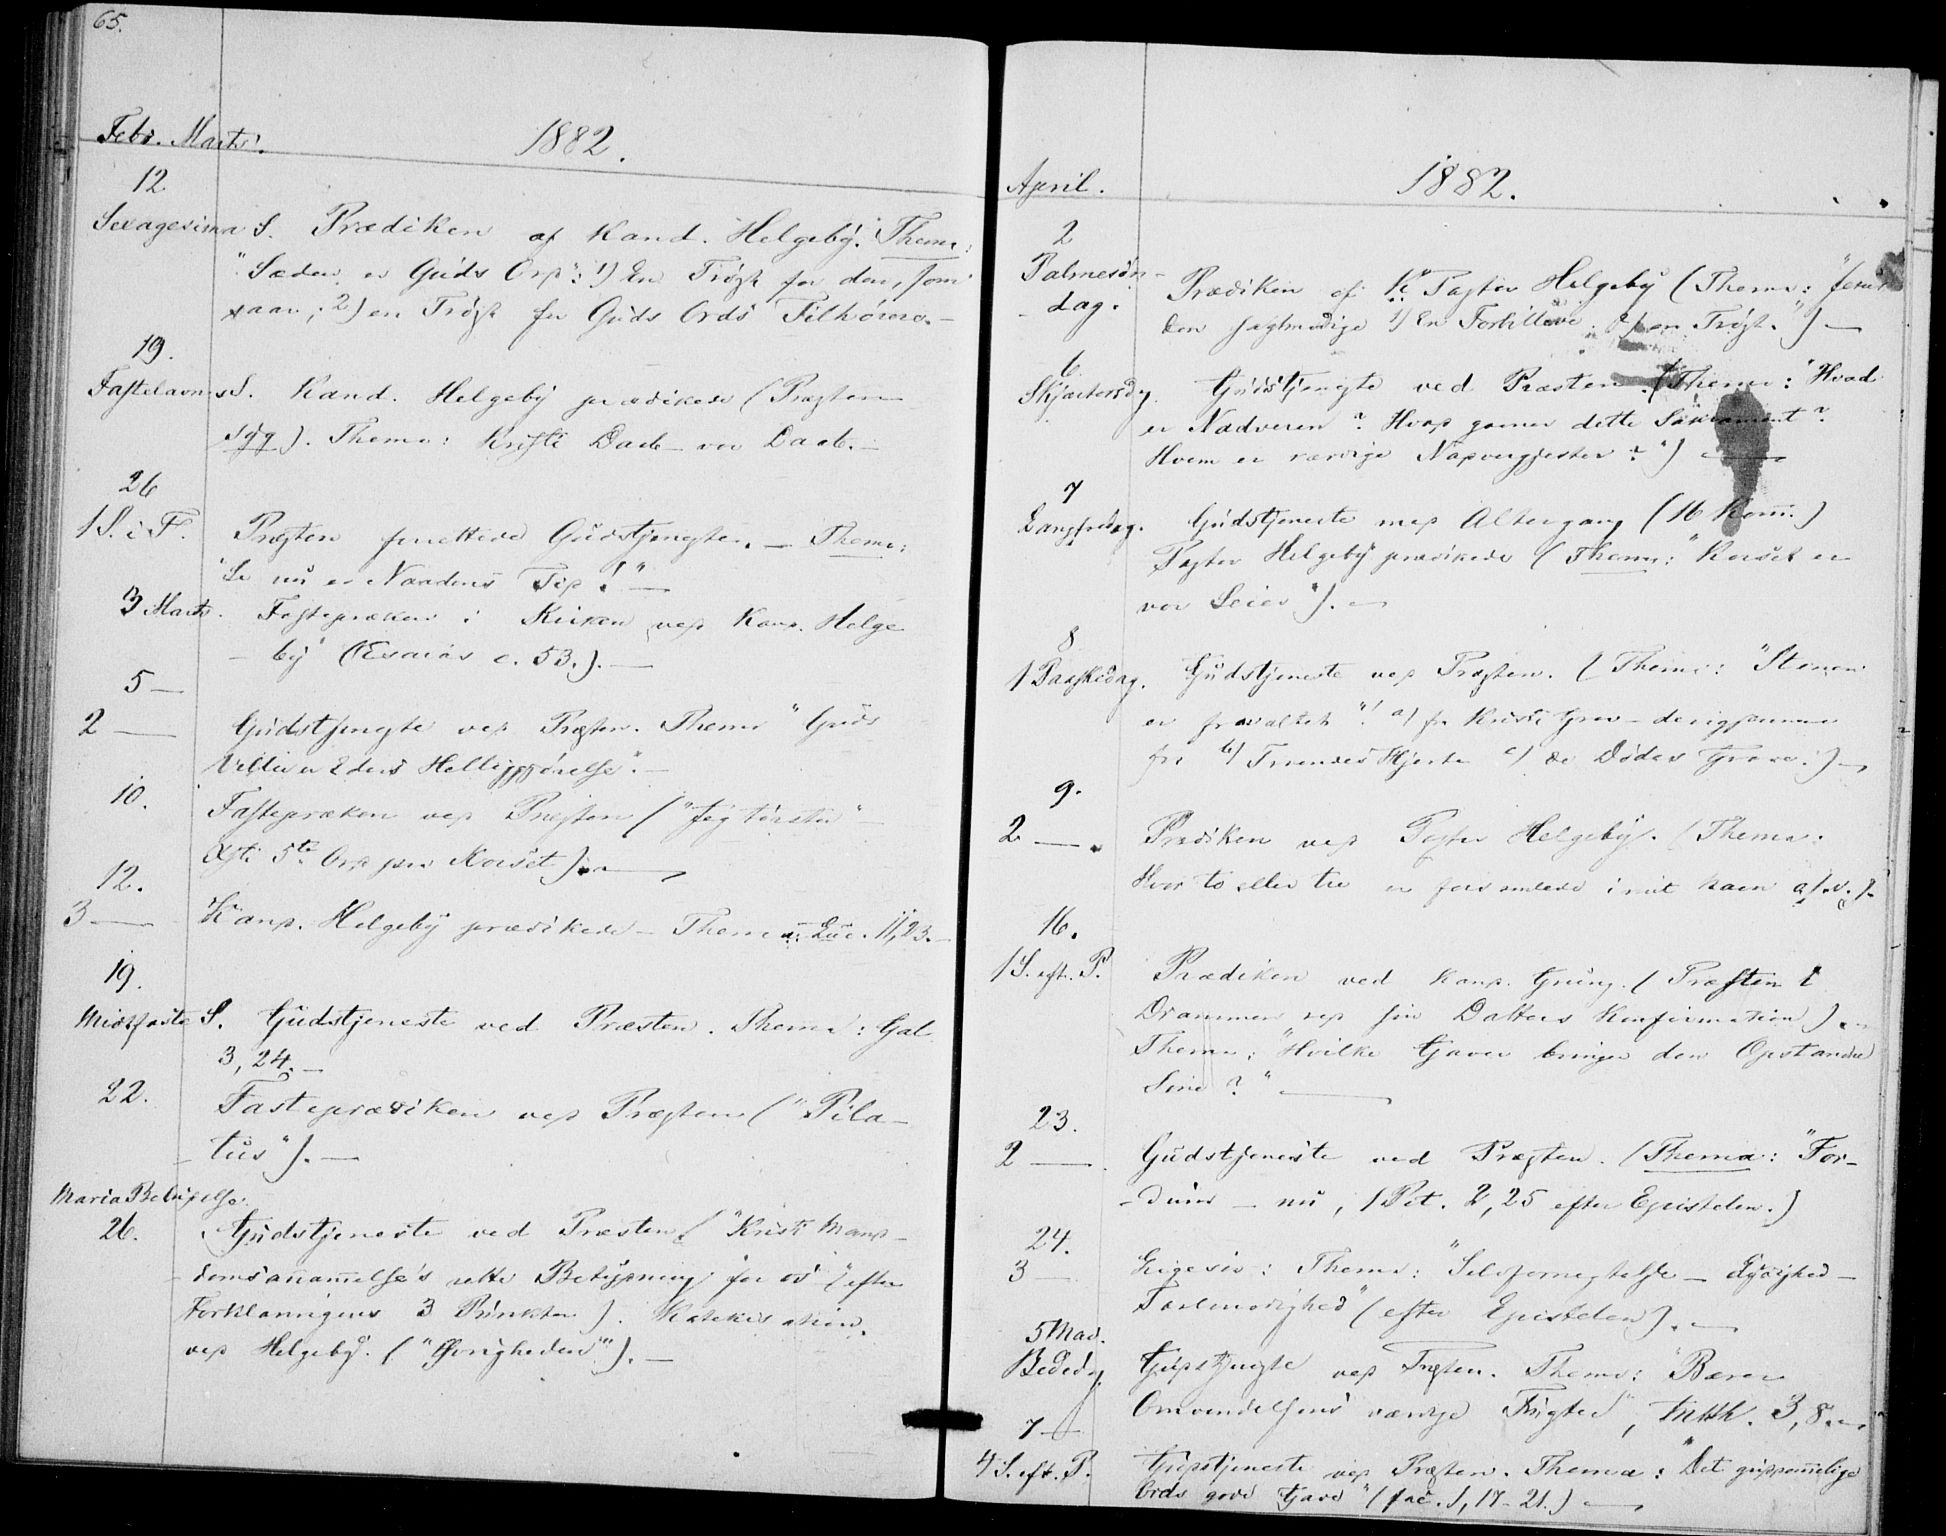 65.
Febr. Marts.
1882.
12
Sexagesima S. Prædiken af Kand. Helgeby. Thema:
"Sæden er Guds Ord": 1) En Trøst for den, som
saar; 2) en Trøst for Guds Ords Tilhørere.—
19.
Fastelavns S. Kand. Helgeby prædikede (Præsten
syg). Thema: Kristi Daab – vor Daab.—
26
1 S. i F. Præsten forrettede Gudstjenesten. — Thema:
"Se nu er Naadens Tid!" —
3 Marts. Fastepræken i Kirken ved Kand. Helge
by (Esaias c. 53.). —
5 —
2 — Gudstjeneste ved Præsten. Thema "Guds
Villie er Eders Helliggjørelse". —
10.
Fastepræken ved Præsten ("Jeg tørster"
5te Ord paa Korset). —
12.
3 — Kand. Helgeby prædikede – Thema: Luc. 11,23. —
19.
Midfaste S. Gudstjeneste ved Præsten. Thema: Gal.
3, 24. —
22.
Fasteprædiken ved Præsten ("Pila-
tus"). —
Maria Bebudelse.
26. Gudstjeneste ved Præsten ("Kristi Mand-
domsanammelse's rette Betydning for os" (efter
Forklaringens 3 Punkter). Katekisation
ved Helgeby. ("Øvrigheden"). —
April.
1882.
2
Palmesøn-
dag. Prædiken af Pastor Helgeby (Thema: "Jesus
den sagtmodige 1) En Forbillede. 2) en Trøst.") —
6
Skjærtorsdag. Gudstjeneste ved Præsten. (Thema: "Hvad
er Nadveren? Hvad gavner dette Sakrament?
Hvem er værdige Nadvergjester?") —
7
Langfredag. Gudstjeneste med Altergang (16 Kom.)
Pastor Helgeby prædikede (Thema: "Korset er
vor Seier"). —
8
1 Paaskedag. Gudstjeneste ved Præsten. (Thema: "Stenen
er fravæltet"! a) fra Kristi Grav –
fra b) Troendes Hjerte c) de Dødes Grave.) —
9.
2 —. Prædiken ved Pastor Helgeby. (Thema:
Hvor to eller tre er forsamlede i mit Navn o. s. v.).
16.
1 S. eft. P. Prædiken ved Kand. Gring. (Præsten i
Drammen ved sin Datters Konfirmation). —
Thema: "Hvilke Gaver bringer den Opstandne
Sine?" —
23.
2 —. Gudstjeneste ved Præsten. (Thema: "For-
dum – nu, 1 Pet. 2, 25 efter Epistelen.)
24.
3 — Ligesis: Thema: "Selvfornegtelse – Lydighed –
Taalmodighed" (efter Epistelen). —
5 Mai.
Bededag Gudstjeneste ved Præsten. Thema: "Bærer
Omvendelsens værdige Frugter", Matth. 3, 8. —
7 —
4 S. eft. P. Gudstjeneste ved Præsten. Thema: "Det guddommelige
Ords gode Gave" (Jac. 1, 17–21.) —